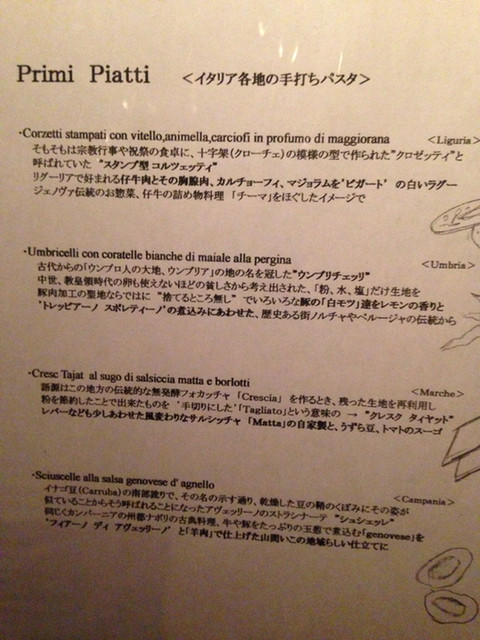 Primi Piatti ＜イタリア各地の手打ちパスタ＞
・Corzetti stampati con vitello,animella,carciofi in profumo di maggiorana ＜Liguria＞
そもそもは宗教行事や祝祭の食卓に、十字架(クローチェ)の模様の型で作られた"クロゼッティ"と
呼ばれていた "スタンプ型 コルツェッティ"
リグーリアで好まれる仔牛肉とその胸腺肉、カルチョーフィ、マジョラムを"ビガート" の白いラグー
ジェノヴァ伝統のお惣菜、仔牛の詰め物料理 「チーマ」をほぐしたイメージで
・Umbricelli con coratelle bianche di maiale alla pergina ＜Umbria＞
古代からの「ウンブロ人の大地、ウンブリア」の地の名を冠した"ウンブリチェッリ"
中世、教皇領時代の卵も使えないほどの貧しさから考え出された、「粉、水、塩」だけ生地を
豚肉加工の聖地ならではに "捨てるところ無し" でいろいろな豚の「白モツ」達をレモンの香りと
"トレッビアーノ スポレティーノ"の煮込みにあわせた、歴史ある街ノルチャやペルージャの伝統から
・Cresc Tajat al sugo di salsiccia matta e borlotti ＜Marche＞
語源はこの地方の伝統的な無発酵フォカッチャ 「Crescia」 を作るとき、残った生地を再利用し
粉を節約したことで出来たものを "手切りにした"「Tagliato」という意味の → "クレスク タイヤット"
レバーなども少しあわせた風変わりなサルシッチャ 「Matta」の自家製と、うずら豆、トマトのスーゴ
・Sciuscelle alla salsa genovese d' agnello ＜Campania＞
イナゴ豆(Carruba)の南部訛りで、その名の示す通り、乾燥した豆の鞘のくぼみにその姿が
似ていることからそう呼ばれることになったアヴェッリーノのストラシナーテ "シュシェッレ"
同じくカンパーニアの州都ナポリの古典料理、牛や豚をたっぷりの玉葱で煮込む「genovese」を
"フィアーノ ディ アヴェッリーノ" と「羊肉」で仕上げた山間いこの地域らしい仕立てに